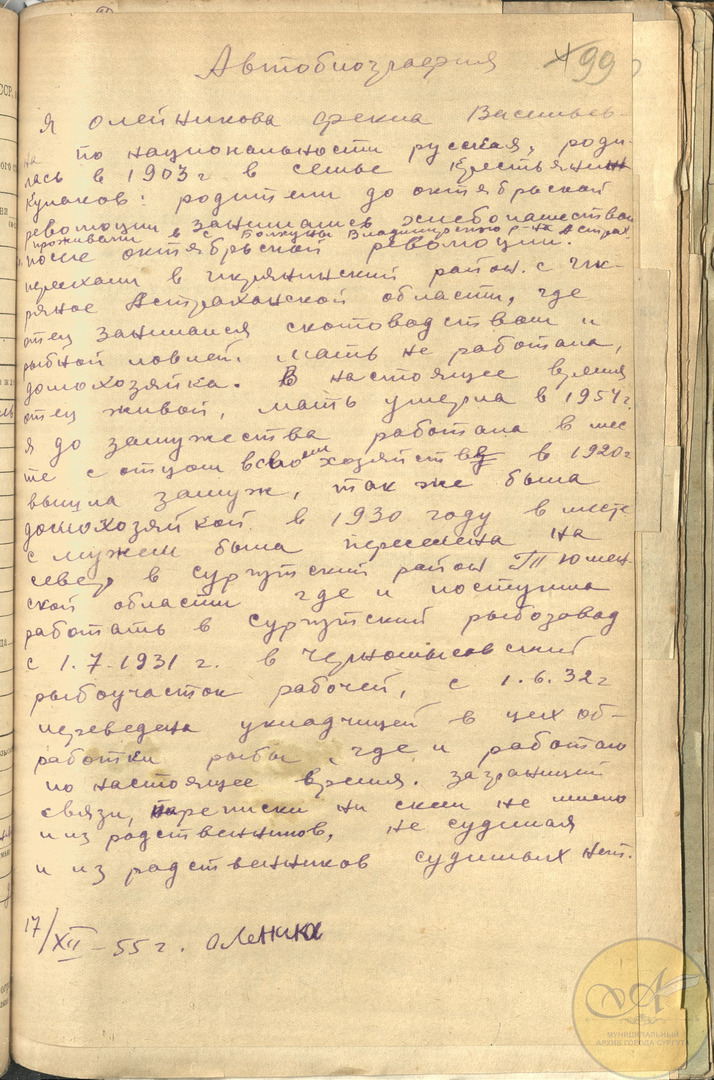 Автобиография
99
Я Олейникова Фекла Василье-
на по национальности русская, роди-
лась в 1903 г в семье крестьянин
кулаков: родители до октябрьской
революции занимались хлебопашеством
проживали в с Болхуны Владимирского р-на Астрах.
после октябрьской революции.
переехали в икрянинский район. с Ик-
ряное Астраханской области, где
отец занимался скотоводством и
рыбной ловлей. мать не работала,
домохозяйка. В настоящее время
отец живой, мать умерла в 1954 г.
я до замужества работала в мес
те с отцом в своим хозяйстве в 1920 г
вышла замуж, так же была
домохозяйкой в 1930 году в месте
с мужем была переселена на
север в Сургутский район Тюмен-
ской области где и поступила
работать в Сургутский рыбозавод
с 1.7.1931 г. в Черномысовский
рыбоучасток рабочей, с 1.6.32 г
переведена укладчицей в цех об-
работки рыбы, где и работаю
по настоящее время. заграницей
связи, переписки ни скем не имею
и из радственников, не судимая
и из радственников судимых нет.
17/XII-55 г. Олейник
МУНИЦИПАЛЬНЫЙ
АРХИВ ГОРОДА СУРГУТА